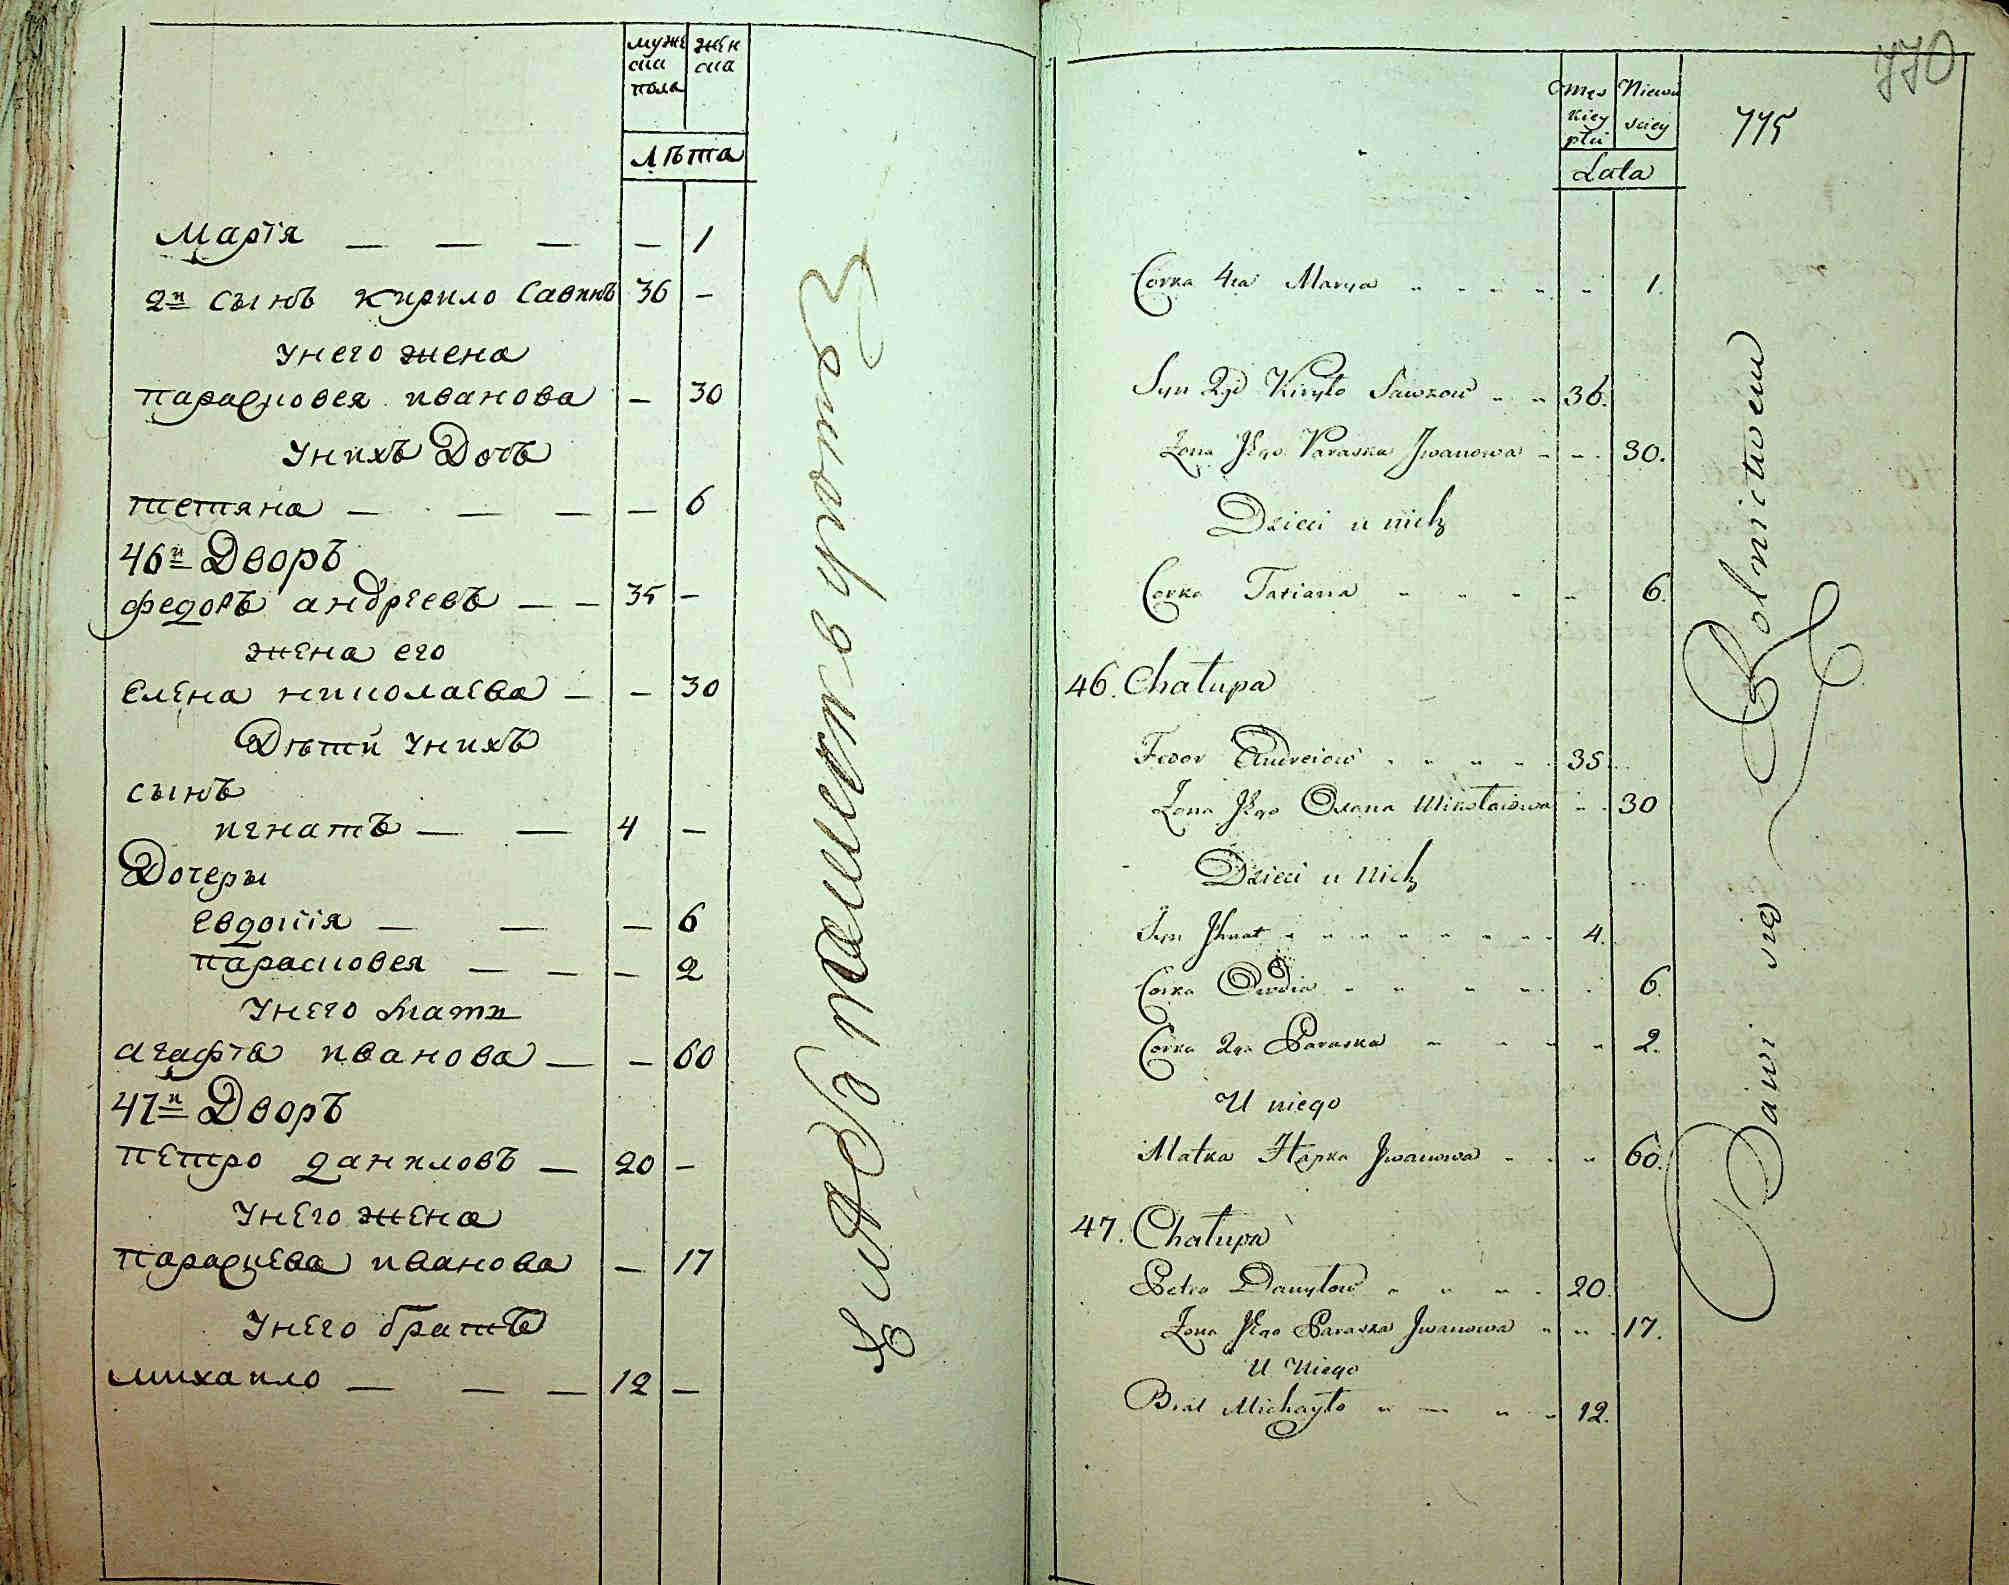 муже
ска
пола
жен
ска
лѣта
Марїя — — — — 1
2й сынъ кирило Савинъ 36 —
унего жена
парасковея иванова — 30
унихъ Дочь
тетяна — — — — 6
46й Дворъ
федоръ андреевъ — — 35 —
жена его
елена николаева — — 30
Дѣти унихъ
сынъ
игнатъ — — 4 —
Дочеры
евдокїя — — — 6
парасковея — — — 2
унего мати
агафїя иванова — — 60
47й Дворъ
петро даниловъ — 20 —
унего жена
парасцева иванова — 17
унего братъ
михаило — — — 12 —
770
775
męs
kiey
płci
Niewie
sciey
Lata
Corka 4ta Marya 1.
Syn 2gi Kiryło Sawzow 36.
Zona Jego Paraska Jwanowa 30.
Dzieci u nich
Corka Tatiana 6.
46. Chałupa
Fedor Andreiow 35.
Zona Jego Oxana Mikołaiowa 30
Dzieci u Nich
Syn Jhnat 4.
Corka Owdia 6.
Corka 2ga Paraska 2.
U niego
Matka Hapka Jwanowa 60.
47. Chałupa
Petro Danyłow 20.
Zona Jego Paraska Jwanowa 17.
U Niego
Brat Michayło 12.
Bawi się Rolnictwem